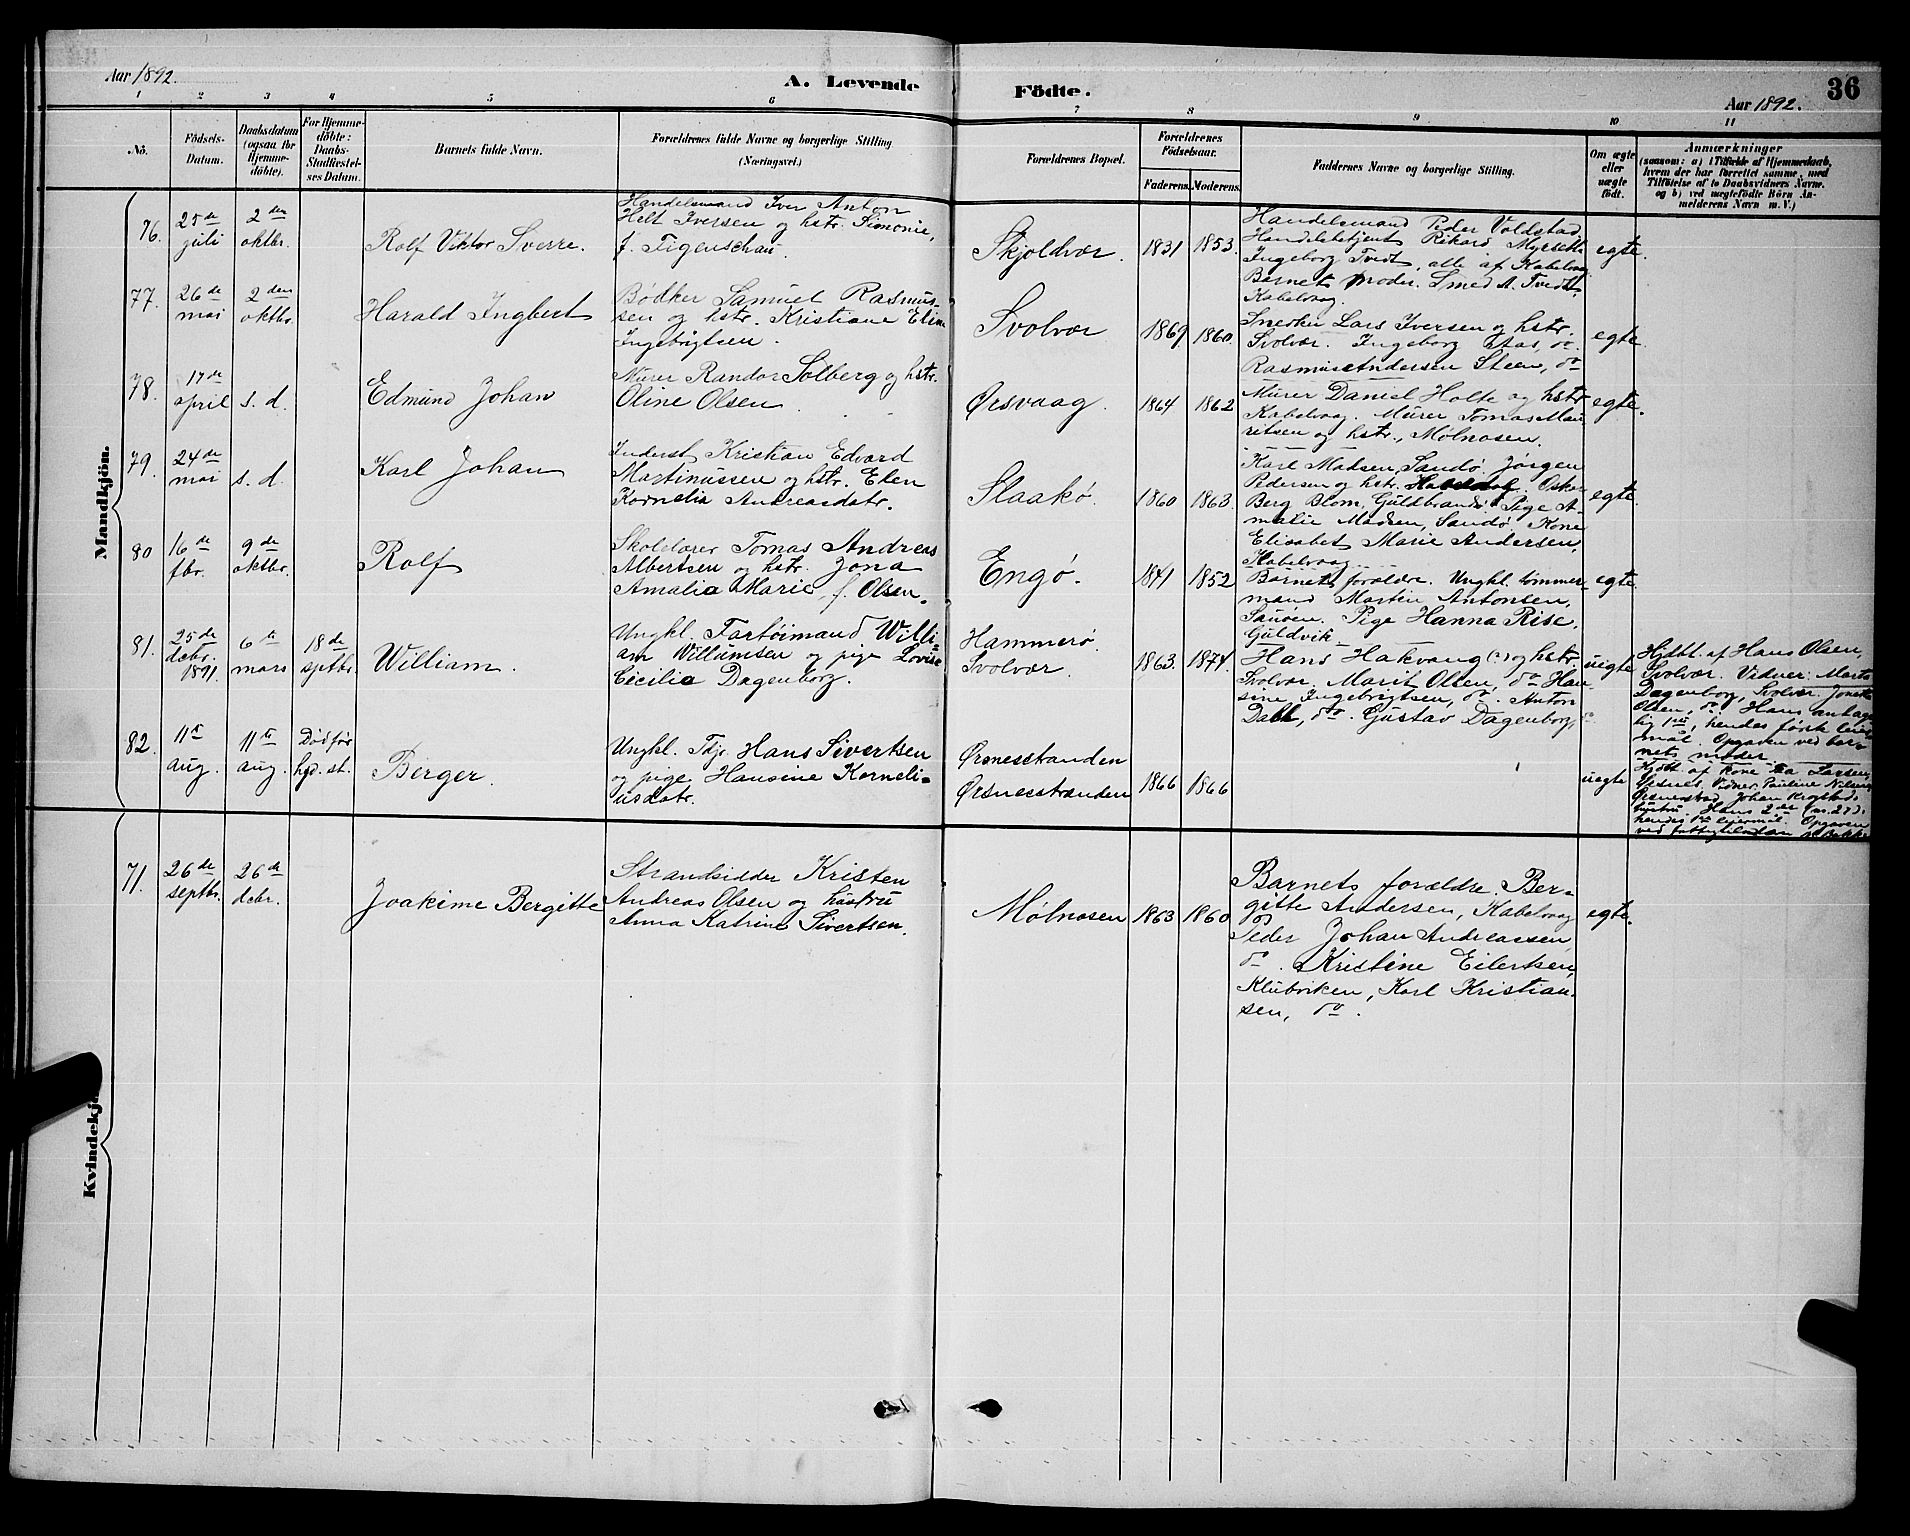 Aar 1892.
A. Levende
Födte.
Aar 1892.
36
1 2 3 4 5 6 7 8 9 10 11
No.
Födsels-
Datum.
Daabsdatum
(ogsaa for
Hjemme-
döbte).
For Hjemme-
döbte:
Daabs-
Stadfæstel-
ses Datum.
Barnets fulde Navn.
Forældrenes fulde Navne og borgerlige Stilling
(Næringsvei.)
Forældrenes Bopæl.
Forældrenes
Födselsaar.
Faderens. Moderens.
Faddernes Navne og borgerlige Stilling.
Om ægte
eller
uægte
födt.
Anmærkninger
(saasom: a) i Tilfælde af Hjemmedaab,
hvem der har forrettet samme, med
Tilföielse af to Daabsvidners Navne.
og b) ved uægtefödte Börn An-
melderens Navn m. V.)
Mandkjön.
76.
25de
juli
2den
oktbr.
Rolf Viktor Sverre.
Handelsmand Iver Anton
Helt Iversen og hstr. Simonie,
f. Figenschau.
Skjoldvær.
1831
1853.
Handelsmand Peder Voldstad,
Handelsbetjent Rikard Myrseth
Ingeborg Tvedt, alle af Kabelvaag
Barnets moder. Smed A. Tvedt,
Kabelvaag.
egte.
77.
26de
mai
2den
oktbr.
Harald Ingbert
Bödker Samuel Rasmus-
sen og hstr. Kristiane Eline
Ingebrigtsen.
Svolvær
1869.
1860.
Snerker Lars Iversen og hstr.
Svolvær. Ingeborg Aas, do.
Rasmus Andersen Steen, do
egte.
78.
17de
april
s. d.
Edmund Johan
Murer Randor Solberg og hstr.
Oline Olsen
Ørsvaag.
1864
1862
Murer Daniel Holte og hstr
Kabelvaag. Murer Tomas Mau-
ritsen og hstr., Mølnosen.
egte.
79.
24de
mai
s. d.
Karl Johan
Inderst Kristian Edvard
Martinussen og hstr. Elen
Kornelia Andreasdatr.
Slaakø.
1860
1863.
Karl Madsen, Sandø. Jörgen
Pedersen og hstr.
Berg Blom, Guldbrandö. Pige A-
malie Madsen, Sandø. Kone
Elisabet Marie Andersen,
Kabelvaag.
egte.
80
16de
fbr.
9de
oktbr.
Rolf
Skolelærer Tomas Andreas
Albertsen og hstr. Jona
Amalia Marie, f. Olsen.
Engø.
1841
1852
Barnets forældre. Ungkl. tömmer-
mand Martin Antonsen,
Pige Hanna Rise,
Guldvik
egte
81.
25de
debr.
1891.
6te
mars
18de
sptbr.
William.
Ungkl. Fartöimand Willi-
am Willumsen og pige Lovise
Cecilia Dagenborg.
Hammerø.
Svolvær.
1863.
1874.
Hans Hakvaag (?) og hstr
Svolvær, Marit Olsen, do Han-
sine Ingebrigtsen, do. Anton
Dahl, do. Gustav Dagenborg, do
uegte
Hjdbt. af Hans Olsen,
Svolvær. Vidner: Marta
Dagenborg, Svolvær. Jonette
Olsen, do. Hans antage-
lig 1ste, hendes förste leier-
mål. Opgaven ved bar-
nets moder
82.
11te
aug.
11te
aug.
Död för
hjd. st.
Berger.
Ungkl. Tdj. Hans Sivertsen
og pige Hansine Korneli-
usdatr.
Ørsnesstranden
Ørsnesstranden
1866
1866
uegte
Hjdbt. af kone Larsen,
Ørsnes. Vidner: Pauline Nilsen,
Ørsnesstrad, Johan Krogstads
hustru Hans 2det (nr. 27).
hendes 1ste leiermål. Opgaven
ved
Kvindekjön.
71.
26de
septbr.
26de
debr.
Joakime Bergitte
Strandsidder Kristen
Andreas Olsen og hustru
Anna Katrine Sivertsen.
Mølnosen
1863
1860
Barnets forældre. Ber-
gitte Andersen, Kabelvaag
Peder Johan Andreassen,
do. Kristine Eilertsen,
Klubviken, Karl Kristian-
sen, do.
egte.